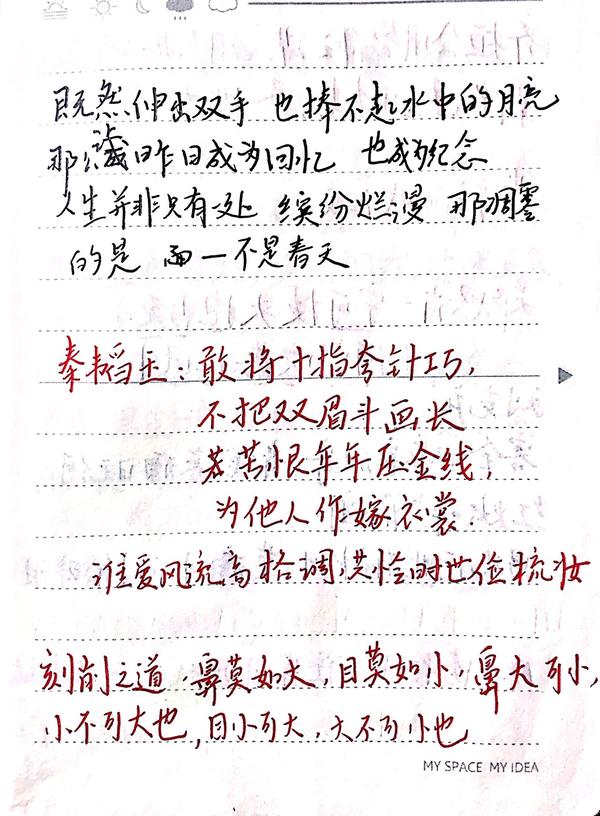 既然伸出双手 也捧不起水中的月亮
那让昨日成为回忆 也成为纪念
人生并非只有一处 缤纷烂漫 那凋零
的是 而一不是春天
秦韬玉：敢将十指夸针巧，
不把双眉斗画长
苦恨年年压金线，
为他人作嫁衣裳.
谁爱风流高格调,共怜时世俭梳妆
刻削之道，鼻莫如大，目莫如小，鼻大可小，
小不可大也，目小可大，大不可小也
MY SPACE MY IDEA